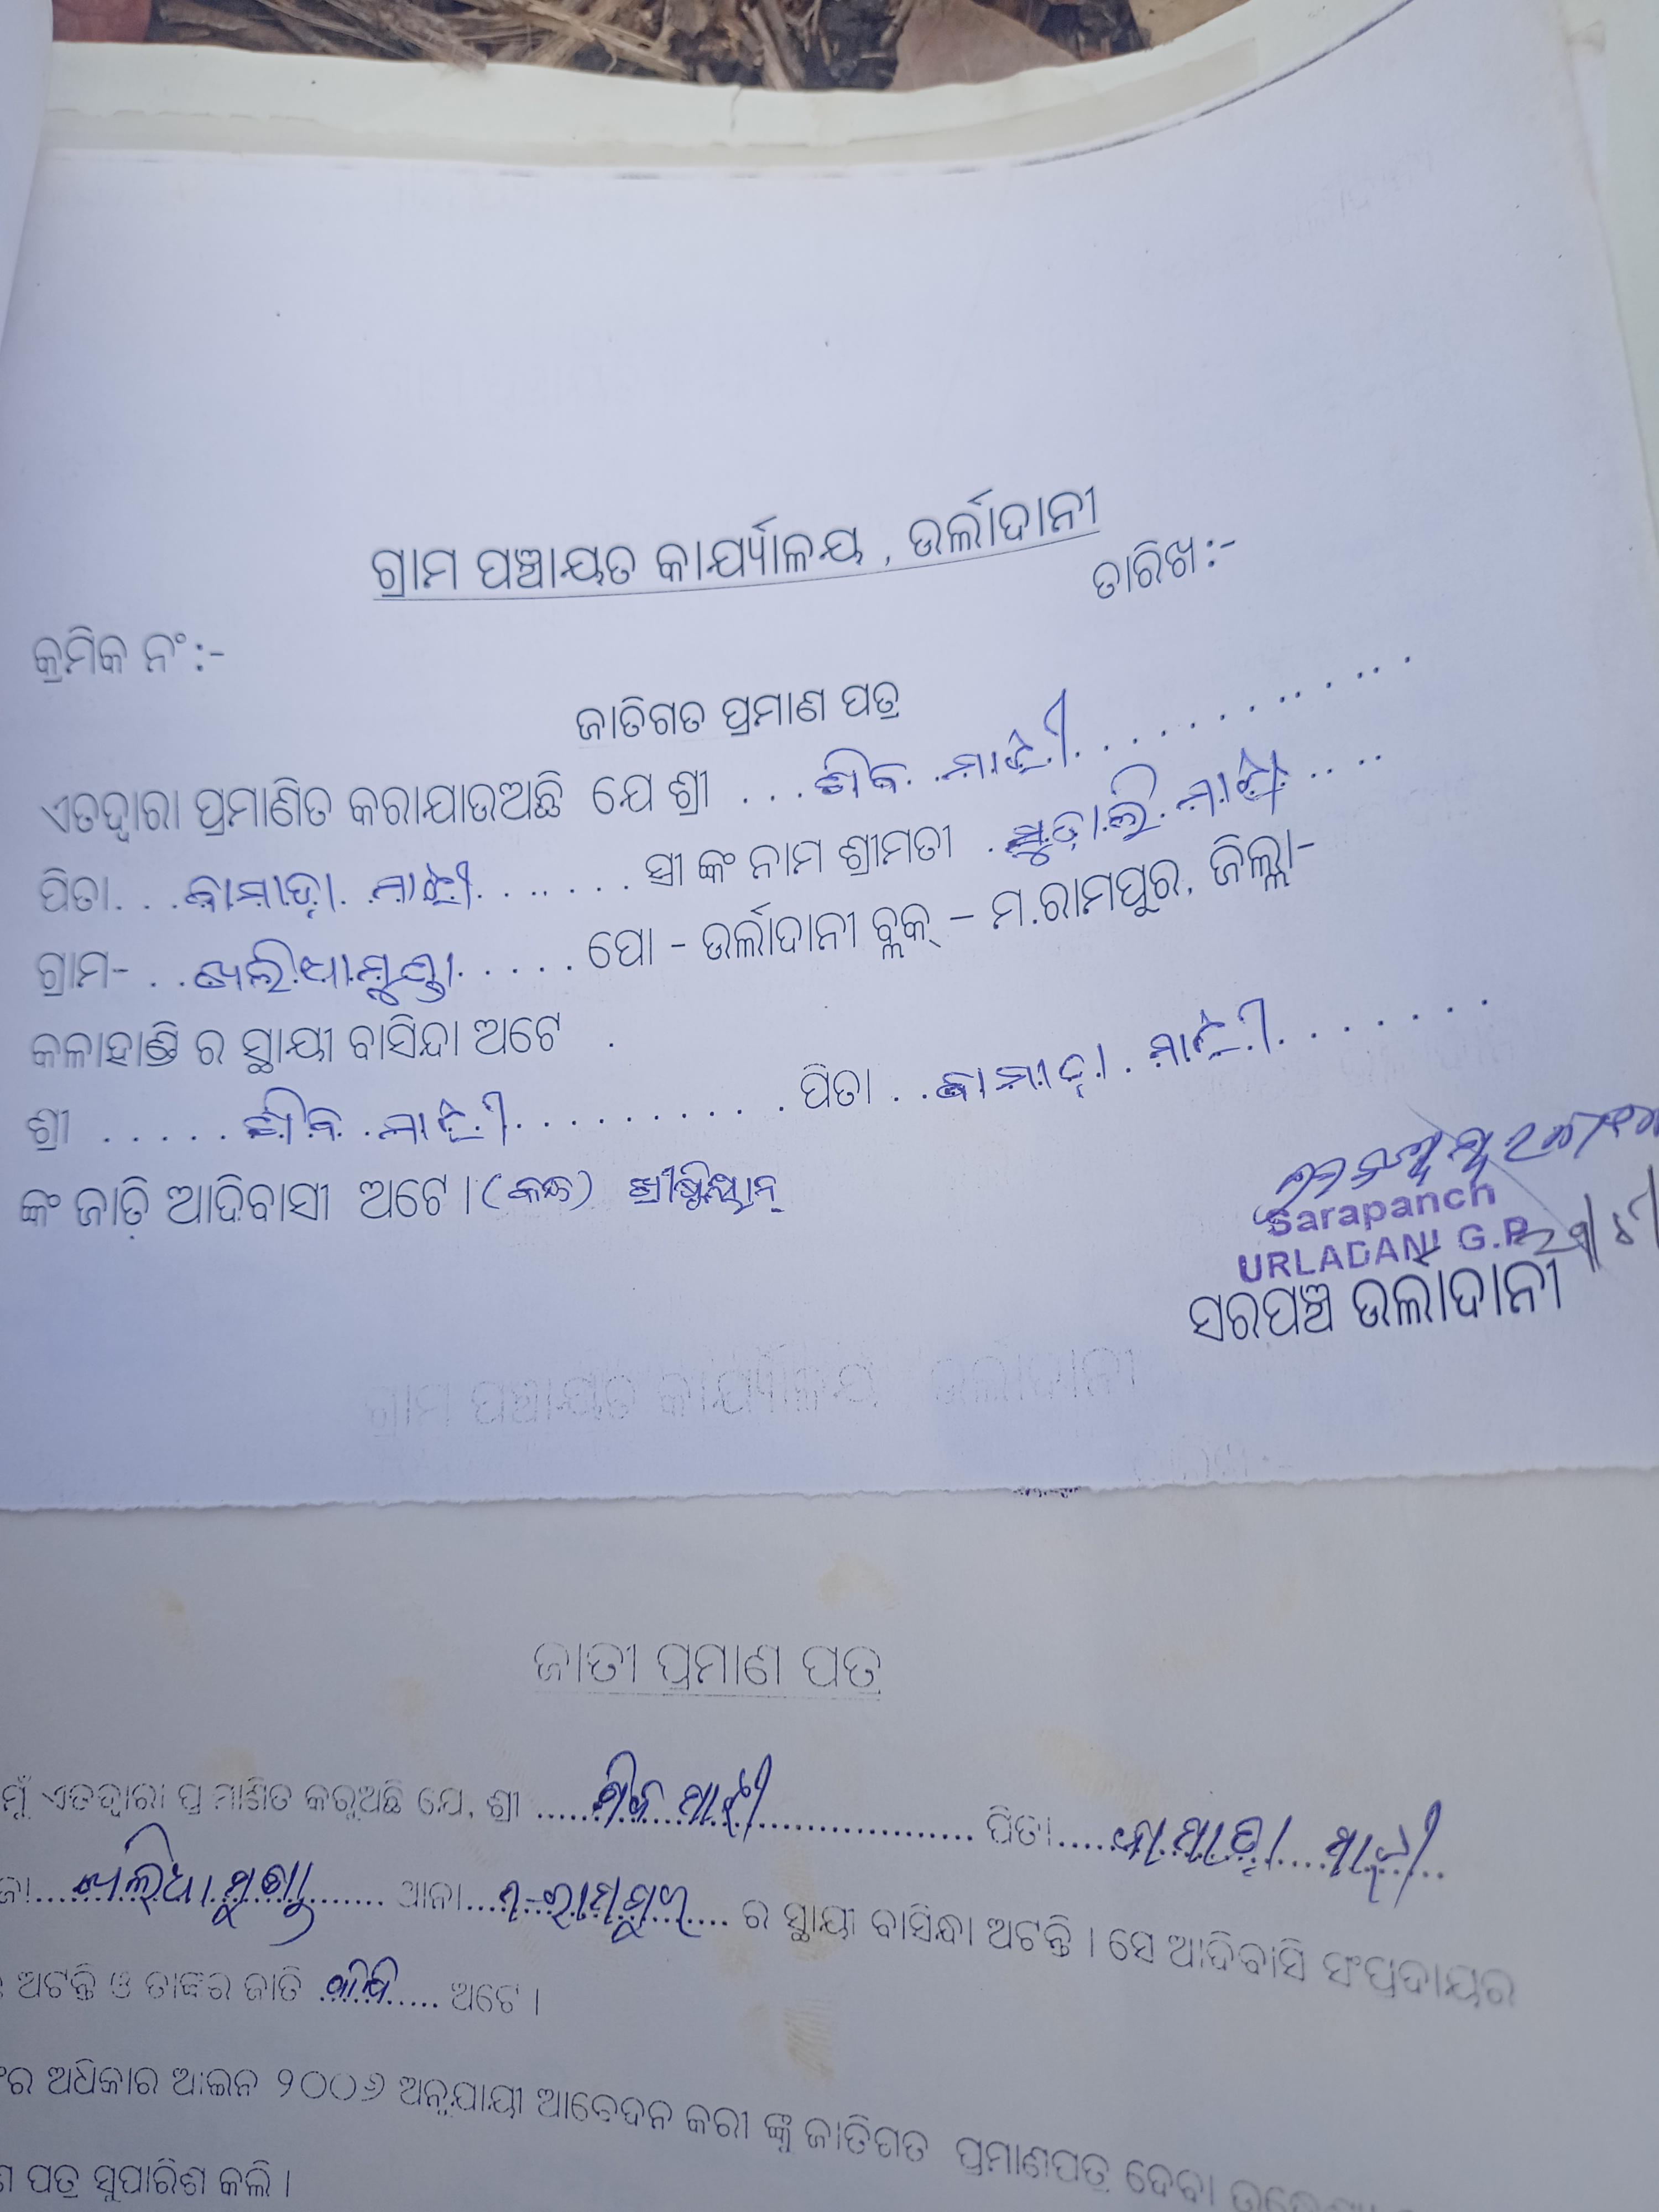 ଗ୍ରାମ ପଞ୍ଚାୟତ କାର୍ଯ୍ୟାଳୟ , ଉର୍ଲାଦାନୀ
ତାରିଖ:-
କ୍ରମିକ ନଂ :-
ଜାତିଗତ ପ୍ରମାଣ ପତ୍ର
ଏତଦ୍ୱାରା ପ୍ରମାଣିତ କରାଯାଉଅଛି ଯେ ଶ୍ରୀ ... ଶିବ ମାଝୀ
ପିତା... ମାଝୀ ....... ସ୍ତ୍ରୀ ଙ୍କ ନାମ ଶ୍ରୀମତୀ .
ଗ୍ରାମ- .. ଖଲିଆମୁଣ୍ଡା ..... ପୋ - ଉର୍ଲାଦାନୀ ବ୍ଲକ୍ – ମ.ରାମପୁର, ଜିଲ୍ଲା-
କଳାହାଣ୍ଡି ର ସ୍ଥାୟୀ ବାସିନ୍ଦା ଅଟେ .
ଶ୍ରୀ ..... ଶିବ ମାଝୀ .......... ପିତା .. ମାଝୀ .......
ଙ୍କ ଜାତି ଆଦିବାସୀ ଅଟେ । (କନ୍ଧ) ଖ୍ରୀଷ୍ଟିୟାନ୍
Sarapanch
URLADANI G.P
ସରପଞ୍ଚ ଉର୍ଲାଦାନୀ
ଜାତୀ ପ୍ରମାଣ ପତ୍ର
ମୁଁ ଏତଦ୍ୱାରା ପ୍ରମାଣିତ କରୁଅଛି ଯେ, ଶ୍ରୀ ..... ଶିବ ମାଝୀ ..... ପିତା ..... ମାଝୀ
ଖଲିଆମୁଣ୍ଡା ....... ଥାନା.... ମ-ରାମପୁର .... ର ସ୍ଥାୟୀ ବାସିନ୍ଧା ଅଟନ୍ତି । ସେ ଆଦିବାସି ସଂପ୍ରଦାୟର
ଅଟନ୍ତି ଓ ତାଙ୍କର ଜାତି ........ ଅଟେ ।
ଅଧିକାର ଆଇନ ୨୦୦୬ ଅନୁଯାୟୀ ଆବେଦନ କରୀ ଙ୍କୁ ଜାତିଗତ ପ୍ରମାଣପତ୍ର ଦେବା
ପତ୍ର ସୁପାରିଶ କଲି ।